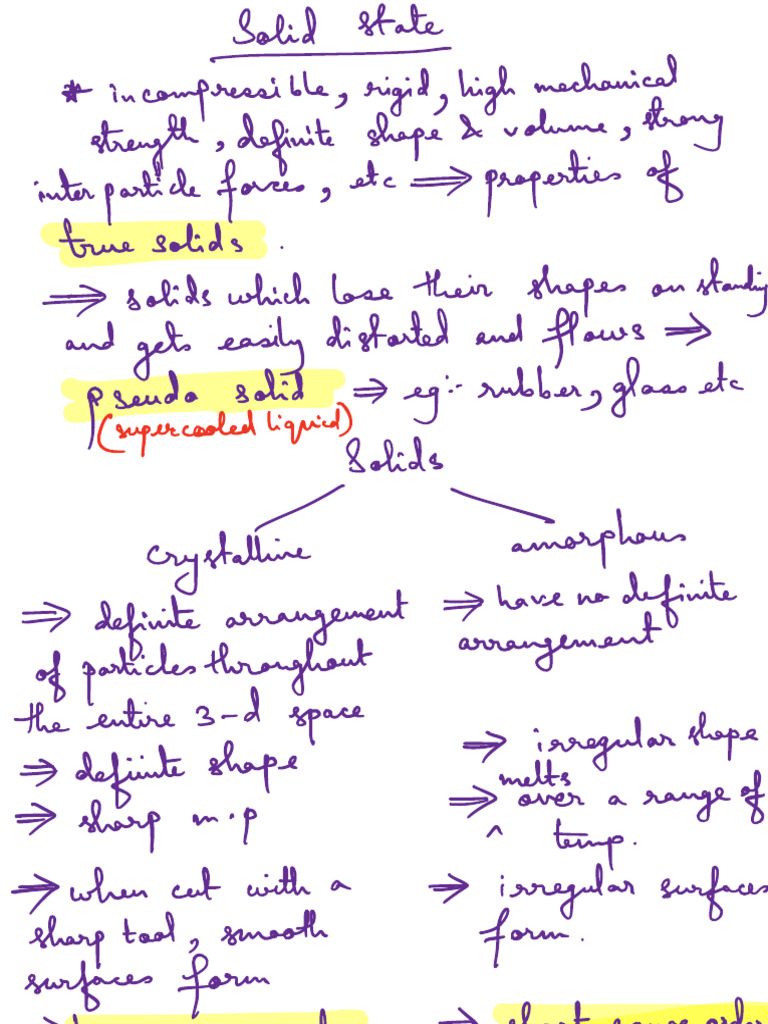 Solid state
* incompressible, rigid, high mechanical
strength, definite shape & volume, strong
inter particle forces, etc ⇒ properties of
true solids.
⇒ solids which lose their shapes on standing
and gets easily distorted and flows ⇒
pseudo solid ⇒ eg:- rubber, glass etc
(supercooled liquid)
Solids
crystalline
amorphous
⇒ definite arrangement
of particles throughout
the entire 3-d space
⇒ have no definite
arrangement
⇒ defiinte shape
⇒ irregular shape
⇒ sharp m.p
melts
⇒ ^ over a range of
temp.
⇒ when cut with a
sharp tool, smooth
surfaces form
⇒ irregular surfaces
form.
⇒ short range order